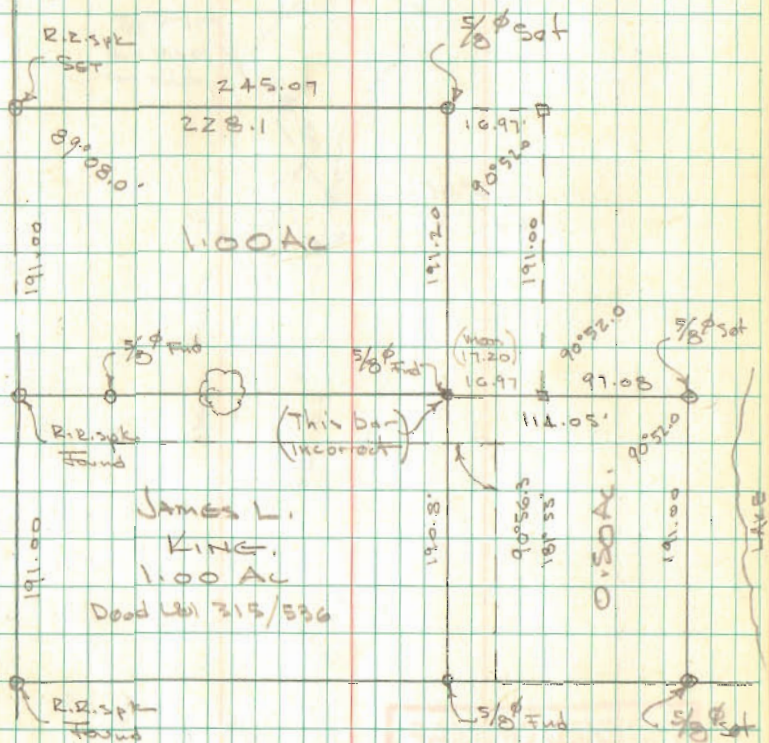 R.R. spk
Set
5/8 ø Set
245.07
228.1
16.97'
89°08.0'
90°52.0
191.00
1.00 Ac
191.20
191.00
5/8 ø Fnd
5/8 ø Fnd
(meas
17.20)
16.97
90°52.0
97.08
5/8 ø Set
114.05'
R.R. spk.
Found
(This bar
incorrect)
90°52.0
JAMES L.
KING.
1.00 Ac
Deed 315/536
191.00
190.8'
90°56.3
181° 53'
0.50 Ac.
191.00
LAKE
R.R. spk
Found
5/8 ø Fnd
5/8 ø Set